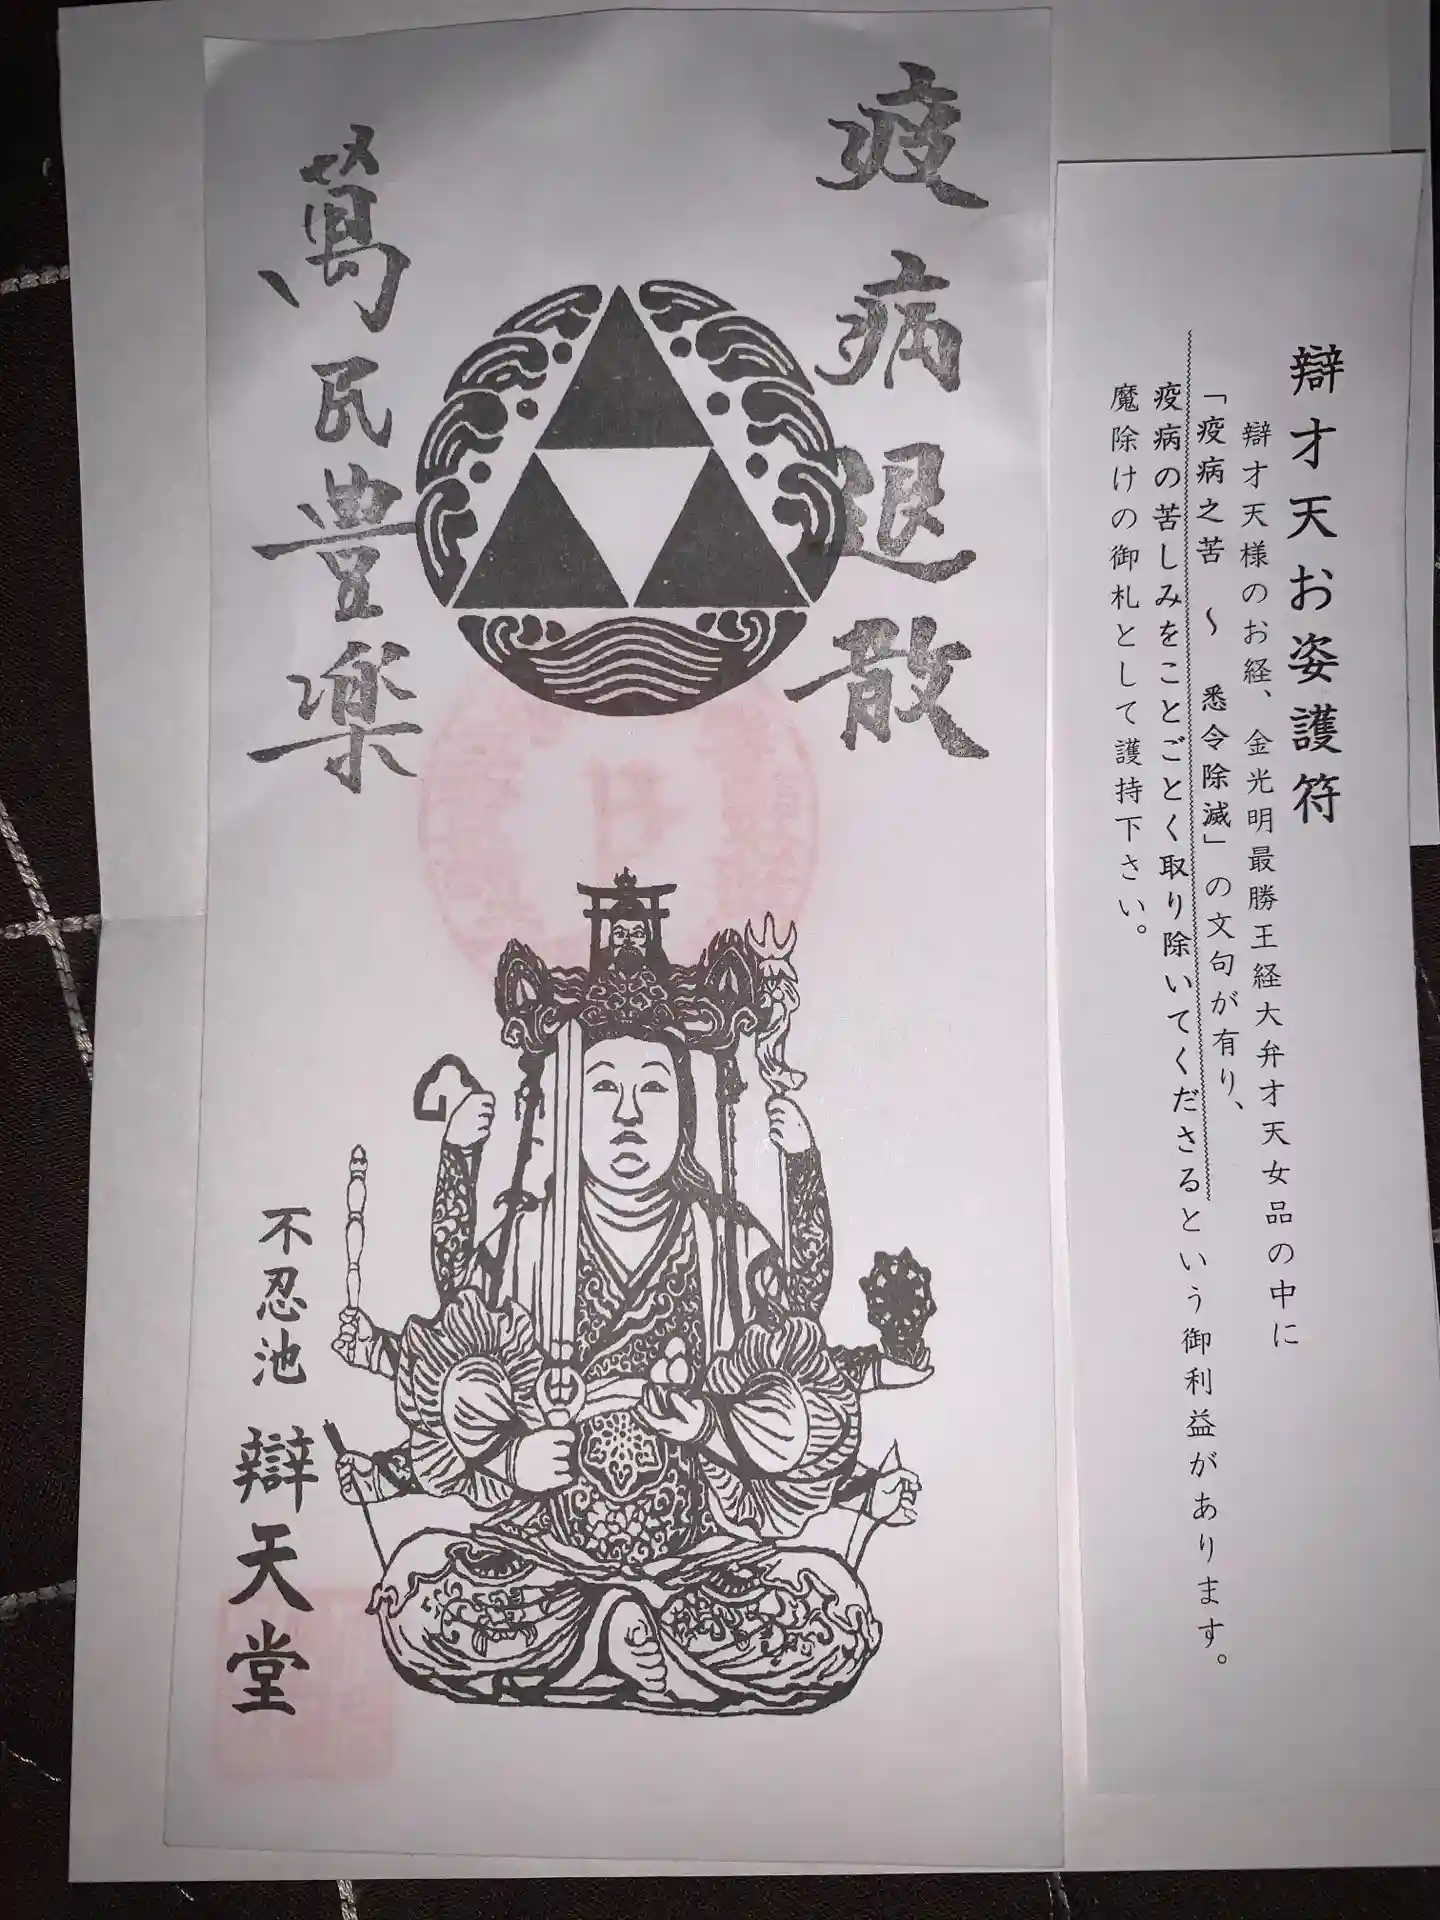 辯才天お姿護符
辯才天様のお経、金光明最勝王経大弁才天女品の中に
「疫病之苦 ～ 悉令除滅」の文句が有り、
疫病の苦しみをことごとく取り除いてくださるという御利益があります。
魔除けの御札として護持下さい。
疫病退散
萬民豊楽
不忍池 辯天堂